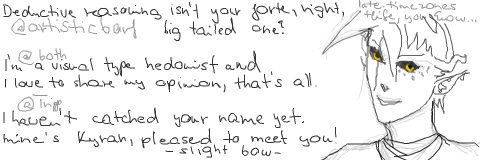 Deductive reasoning isn't your forte, right,
@artisticbarf big tailed one?
late - timezones
+life, you know...
@ both
I'm a visual type hedonist and
I love to share my opinion, that's all.
@Tripp
I haven't catched your name yet.
mine's Kyran, pleased to meet you!
- slight bow -